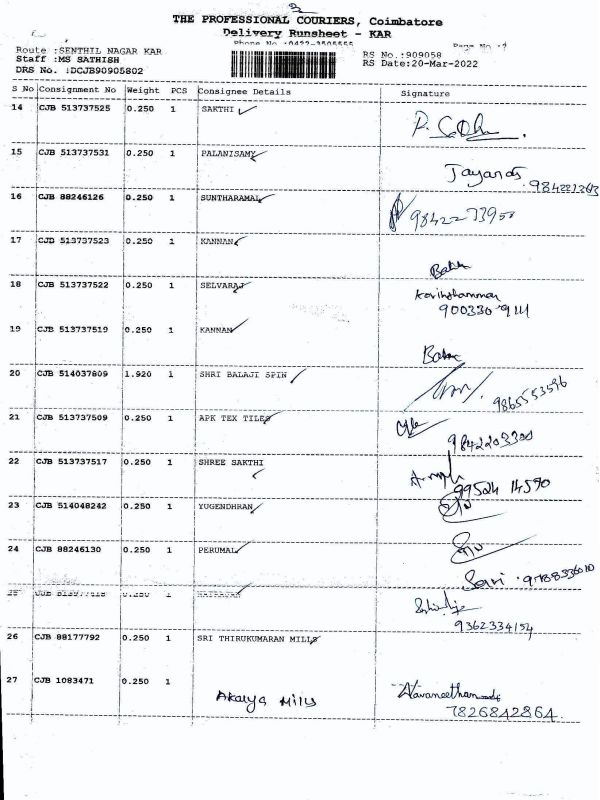 THE PROFESSIONAL COURIERS, Coimbatore
Delivery Runsheet - KAR
Phone No :0422-3505555
Page No :
Route :SENTHIL NAGAR KAR
RS No.:909058
Staff :MS SATHISH
RS Date:20-Mar-2022
DRS No. :DCJB90905802
S No Consignment No Weight PCS Consignee Details Signature
14 CJB 513737525 0.250 1 SAKTHI
15 CJB 513737531 0.250 1 PALANISAMY
Jayanth
16 CJB 88246126 0.250 1 SUNTHARAMAL
17 CJD 513737523 0.250 1 KANNAN
18 CJB 513737522 0.250 1 SELVARAJ
19 CJB 513737519 0.250 1 KANNAN
20 CJB 514037809 1.920 1 SHRI BALAJI SPIN
9865553596
21 CJB 513737509 0.250 1 APK TEX TILES
9842203300
22 CJB 513737517 0.250 1 SHREE SAKTHI
99524 14590
23 CJB 514048242 0.250 1 YUGENDHRAN
24 CJB 88246130 0.250 1 PERUMAL
25 NATRAJAN
9362334154
26 CJB 88177792 0.250 1 SRI THIRUKUMARAN MILLS
27 CJB 1083471 0.250 1 Akalya Mills
7826842864.